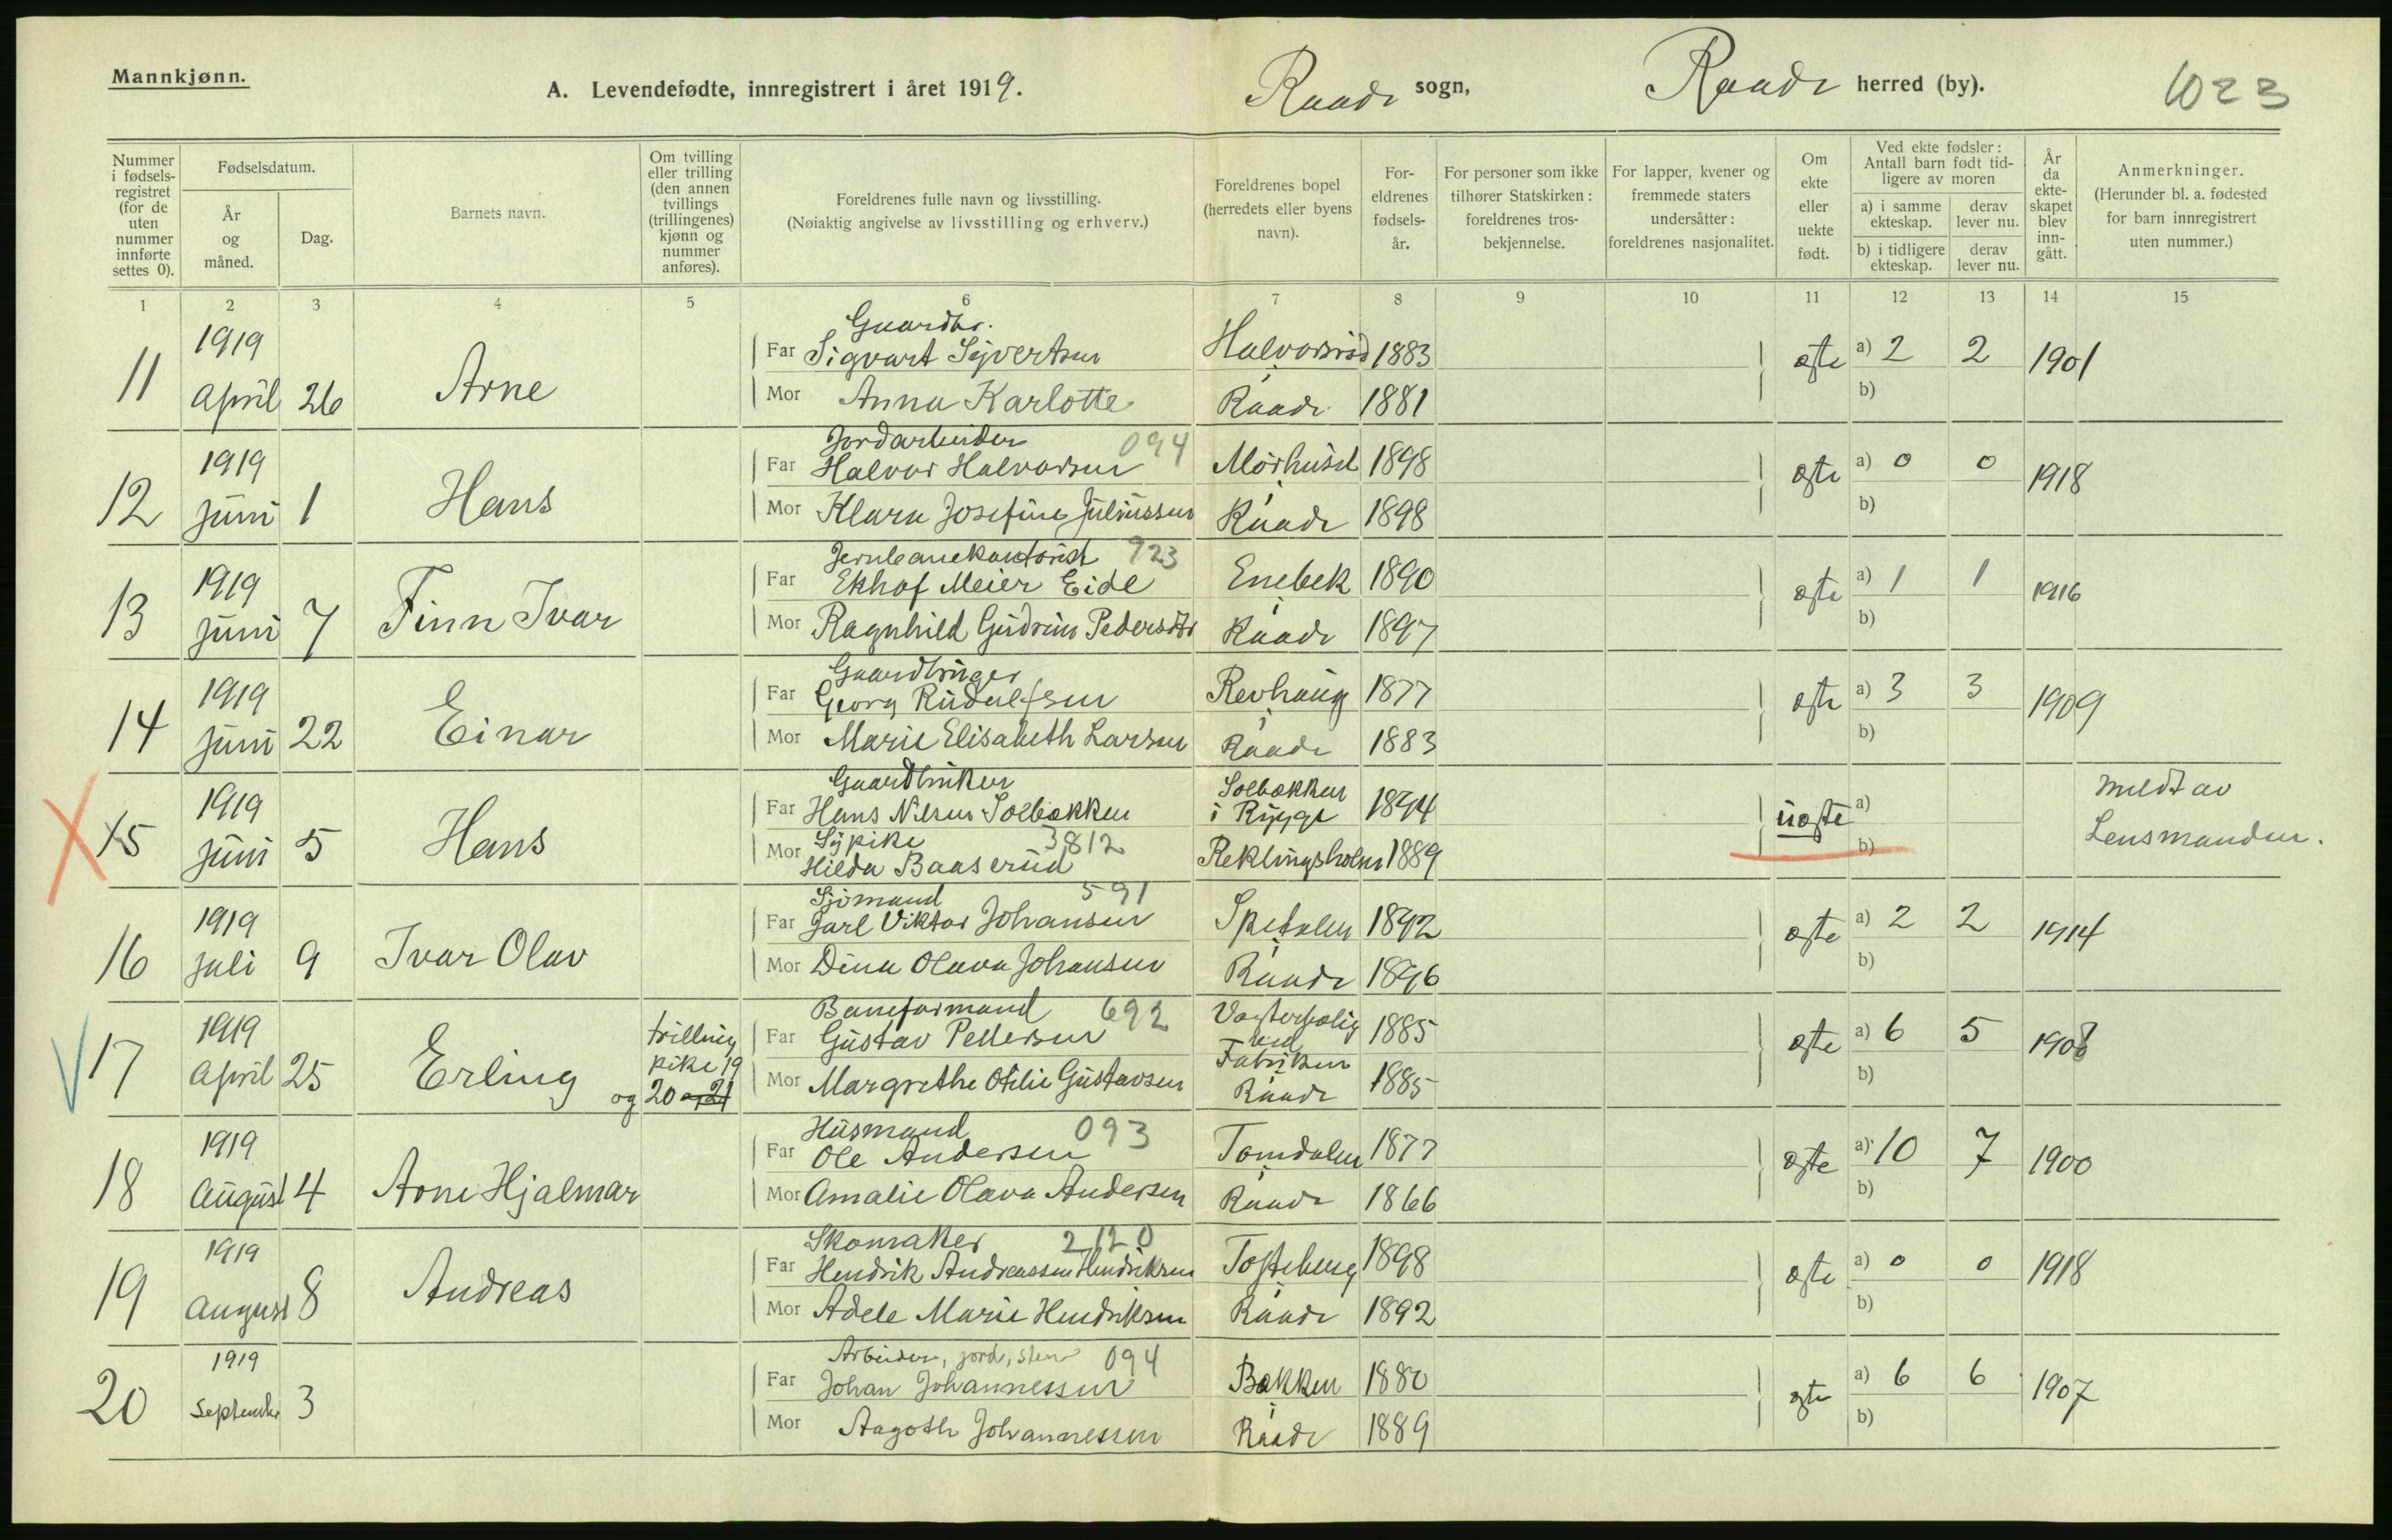 Mannkjønn.
A. Levendefødte, innregistrert i året 1919. Raade sogn, Raade herred (by). 1023
Nummer i fødselsregistret (for de uten nummer innførte settes 0).
Fødselsdatum.
År og måned.
Dag.
Barnets navn.
Om tvilling eller trilling (den annen tvillings (trillingenes) kjønn og nummer anføres).
Foreldrenes fulle navn og livsstilling.
(Nøiaktig angivelse av livsstilling og erhverv.)
Foreldrenes bopel (herredets eller byens navn).
Foreldrenes fødselsår.
For personer som ikke tilhører Statskirken: foreldrenes trosbekjennelse.
For lapper, kvener og fremmede staters undersåtter: foreldrenes nasjonalitet.
Om ekte eller uekte født.
Ved ekte fødsler: Antall barn født tidligere av moren
a) i samme ekteskap. derav lever nu.
b) i tidligere ekteskap. derav lever nu.
År da ekteskapet blev inngått.
Anmerkninger.
(Herunder bl. a. fødested for barn innregistrert uten nummer.)
1 2 3 4 5 6 7 8 9 10 11 12 13 14 15
Gaardbr.
11 1919 April 26 Arne Far Sigvart Syvertsen Halvorsrød 1883 egte a) 2 2 1901
Mor Anna Karlotte i Raade 1881 b)
Jordarbeider 094
12 1919 Juni 1 Hans Far Halvor Halvorsen Mørhuset 1898 egte a) 0 0 1918
Mor Klara Josefine Juliussen i Raade 1898 b)
Jernbanekontorist 923
13 1919 Juni 7 Finn Ivar Far Ekhof Meier Eide Enebek 1890 egte a) 1 1 1916
Mor Ragnhild Gudrun Pedersdtr i Raade 1897 b)
Gaardbruger
14 1919 Juni 22 Einar Far Georg Rudolfsen Revhaug 1877 egte a) 3 3 1909
Mor Marie Elisabeth Larsen i Raade 1883 b)
Gaardbruker
15 1919 Juni 5 Hans Far Hans Nilsen Solbakken Solbakken i Rygge 1894 uegte a) Meldt av Lensmanden.
Sypike 3812
Mor Hilda Baaserud Reklingsholm 1889 b)
Sjømand 591
16 1919 Juli 9 Ivar Olav Far Jarl Viktor Johansen Spetalen 1892 egte a) 2 2 1914
Mor Dina Olava Johansen i Raade 1896 b)
Baneformand 692
17 1919 April 25 Erling trilling pike 19 og 20 og 21 Far Gustav Pettersen Vogterbolig ved Fabriken 1885 egte a) 6 5 1908
Mor Margrethe Otilie Gustavsen i Raade 1885 b)
Husmand 093
18 1919 August 4 Arne Hjalmar Far Ole Andersen Tomdalen 1877 egte a) 10 7 1900
Mor Amalie Olava Andersen i Raade 1866 b)
Skomaker 2120
19 1919 August 8 Andreas Far Hendrik Andreassen Hendriksen Tosteberg 1898 egte a) 0 0 1918
Mor Adele Marie Hendriksen i Raade 1892 b)
Arbeider, jord, sten 094
20 1919 September 3 Far Johan Johannessen Bakken 1880 egte a) 6 6 1907
Mor Aagoth Johannessen i Raade 1889 b)